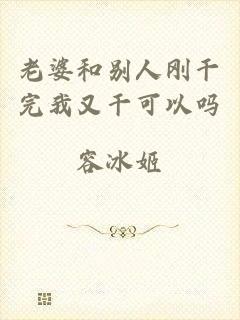 老婆和别人刚干
完我又干可以吗
容冰姬